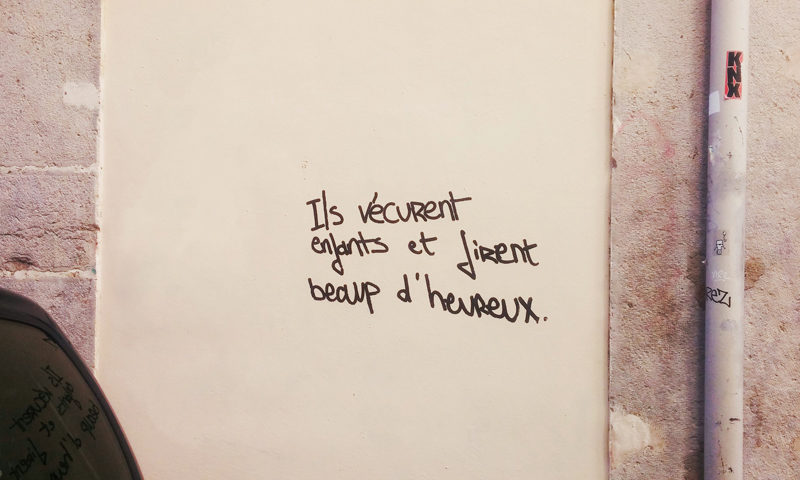 Ils vécurent
enfants et firent
beaup d'heureux.
KNX
REZ